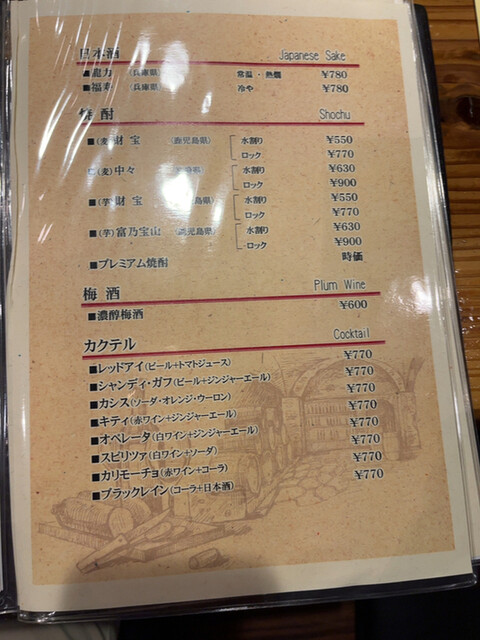 日本酒 Japanese Sake
■龍力 (兵庫県) 常温・熱燗 ¥780
■福寿 (兵庫県) 冷や ¥780
焼酎 Shochu
■(麦)財宝 (鹿児島県) 水割り ¥550
ロック ¥770
■(麦)中々 水割り ¥630
ロック ¥900
■(芋)財宝 水割り ¥550
ロック ¥770
■(芋)富乃宝山 水割り ¥630
ロック ¥900
■プレミアム焼酎 時価
梅酒 Plum Wine
■濃醇梅酒 ¥600
カクテル Cocktail
■レッドアイ(ビール+トマトジュース) ¥770
■シャンディ・ガフ(ビール+ジンジャーエール) ¥770
■カシス(ソーダ・オレンジ・ウーロン) ¥770
■キティ(赤ワイン+ジンジャーエール) ¥770
■オペレータ(白ワイン+ジンジャーエール) ¥770
■スピリツァ(白ワイン+ソーダ) ¥770
■カリモーチョ(赤ワイン+コーラ) ¥770
■ブラックレイン(コーラ+日本酒) ¥770